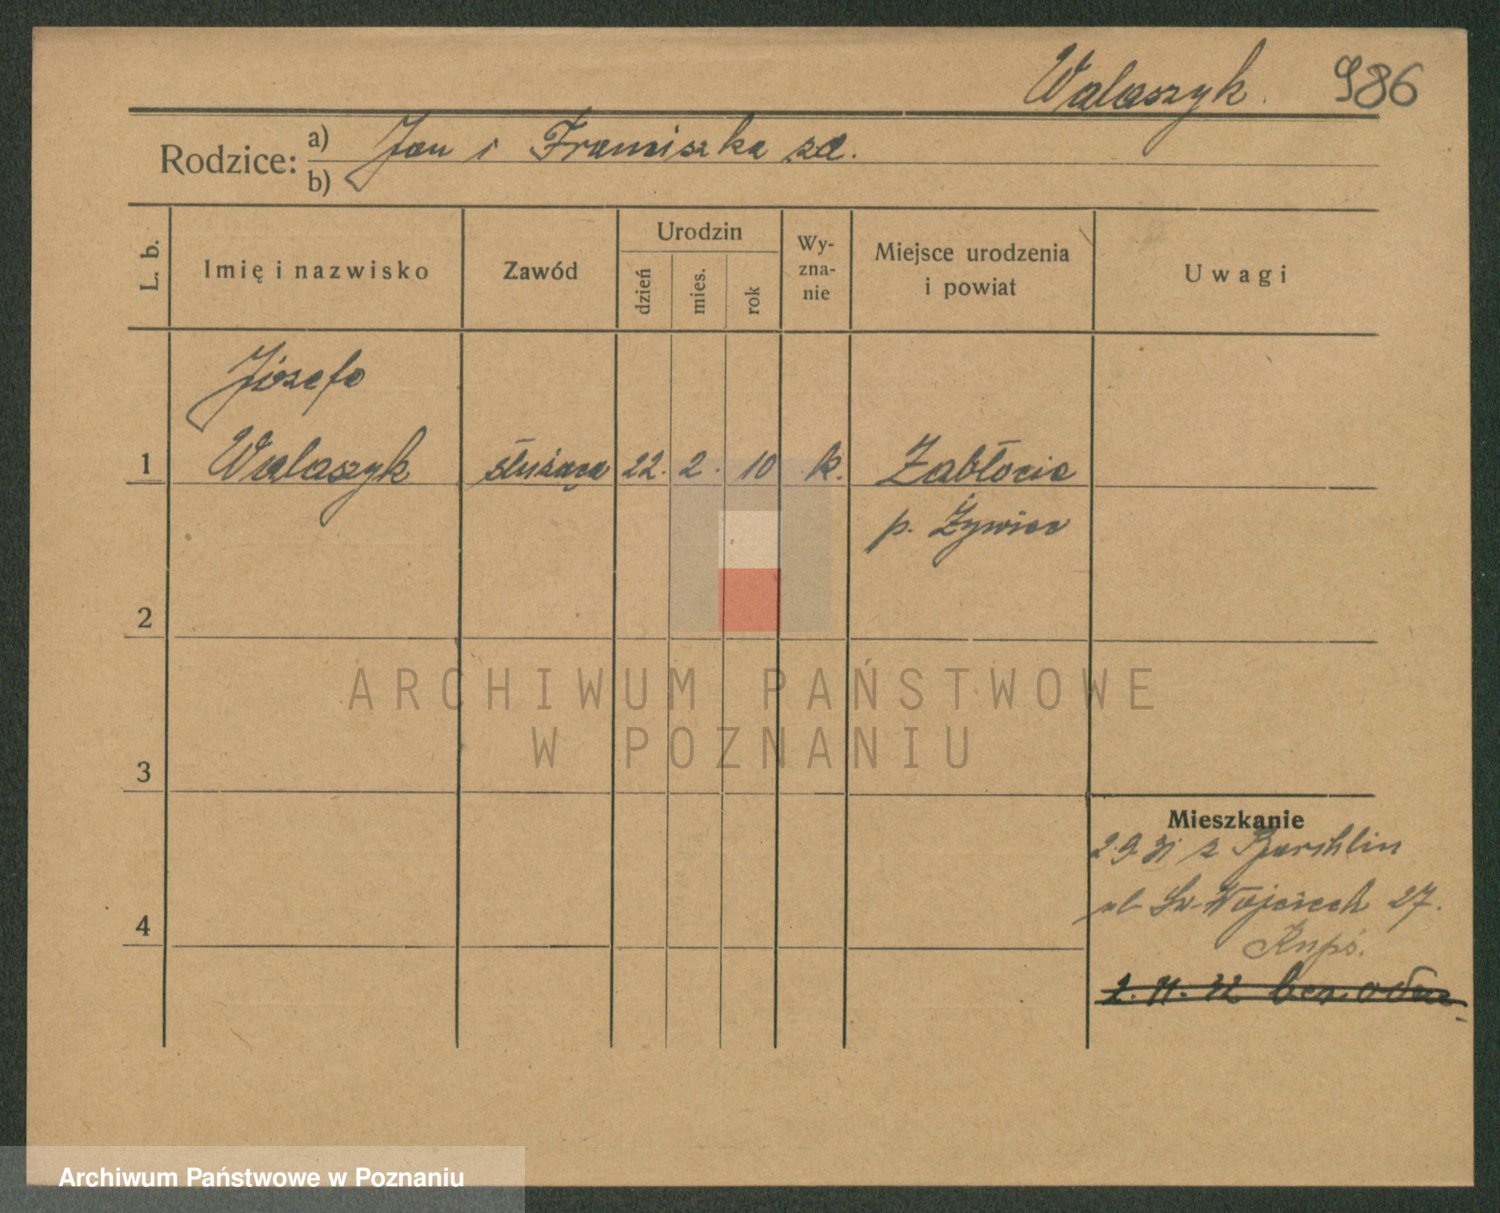 Walaszyk. 986
Rodzice: a) Jan i Franciszka zd.
b)
L. b.
Imię i nazwisko
Zawód
Urodzin
dzień
mies.
rok
Wy-
zna-
nie
Miejsce urodzenia
i powiat
Uwagi
Józefa
1 Walaszyk służąca 22. 2. 10 k. Zabłocie
p. Żywiec
2
ARCHIWUM PAŃSTWOWE
W POZNANIU
3
Mieszkanie
2.9.31 z
ul. Św. Wojciech 27.
4
2.11.32 bez odm.
Archiwum Państwowe w Poznaniu